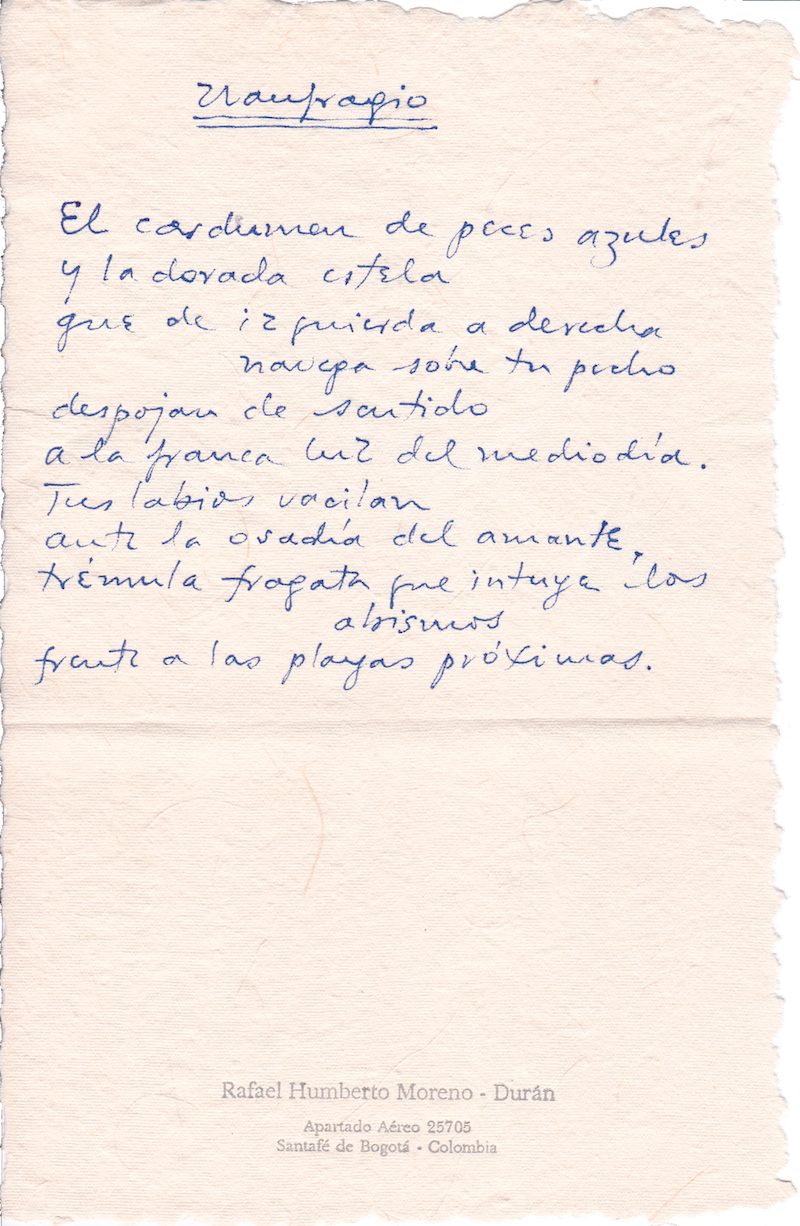 Naufragio
El cardumen de peces azules
y la dorada estela
que de izquierda a derecha
navega sobre tu pecho
despojan de sentido
a la franca luz del mediodía.
Tus labios vacilan
ante la osadía del amante,
trémula fragata que intuye los
abismos
frente a las playas próximas.
Rafael Humberto Moreno - Durán
Apartado Aéreo 25705
Santafé de Bogotá - Colombia